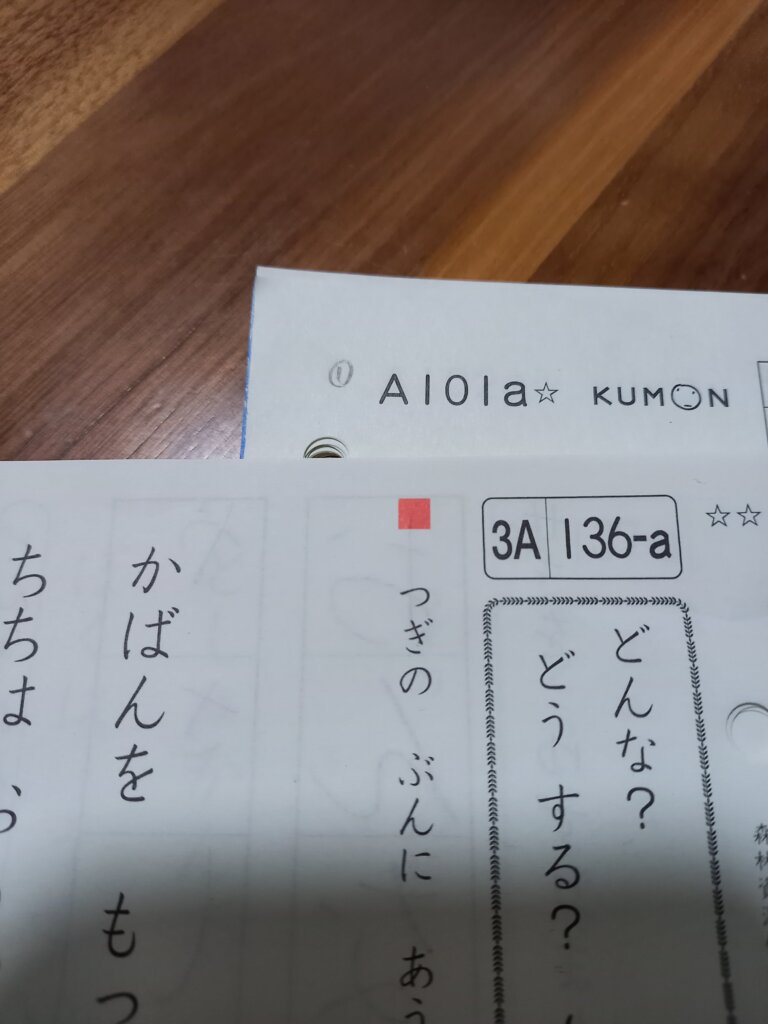 ① A101a☆ KUMON
3A 136-a ☆☆
どんな?
どう する?
つぎの ぶんに あう
かばんを もっ
ちちは